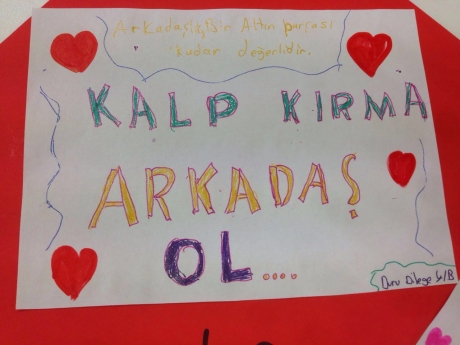 Arkadaşlık Bir Altın parçası
kadar değerlidir.
KALP KIRMA
ARKADAŞ
OL....
Duru